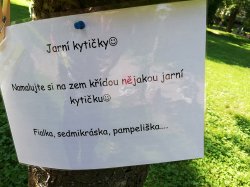 Jarní kytičky☺
Namalujte si na zem křídou nějakou jarní
kytičku☺
Fialka, sedmikráska, pampeliška....